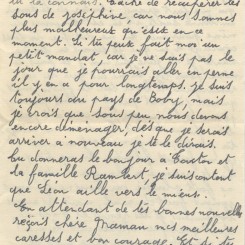 tu la connais. Tâche de récupérer les
bons de joséphine, car nous sommes
plus malheureux qu'est ce en ce
moment. Si tu peux fait moi un
petit mandat, car je ne suis pas le
jour que je pourrais aller en perme
il y en a pour longtemps. je suis
toujours du pays de Boby, mais
je crois que, sous peu nous devons
encore déménager, dès que je serais
arriver à nouveau je te le dirais.
Tu donneras le bonjour à Gaston et
la famille Rambert, je suis content
que Léon aille vers le mieux.
En attendant de tes bonnes nouvelles
reçois chère Maman mes meilleures
caresses et bon courage.